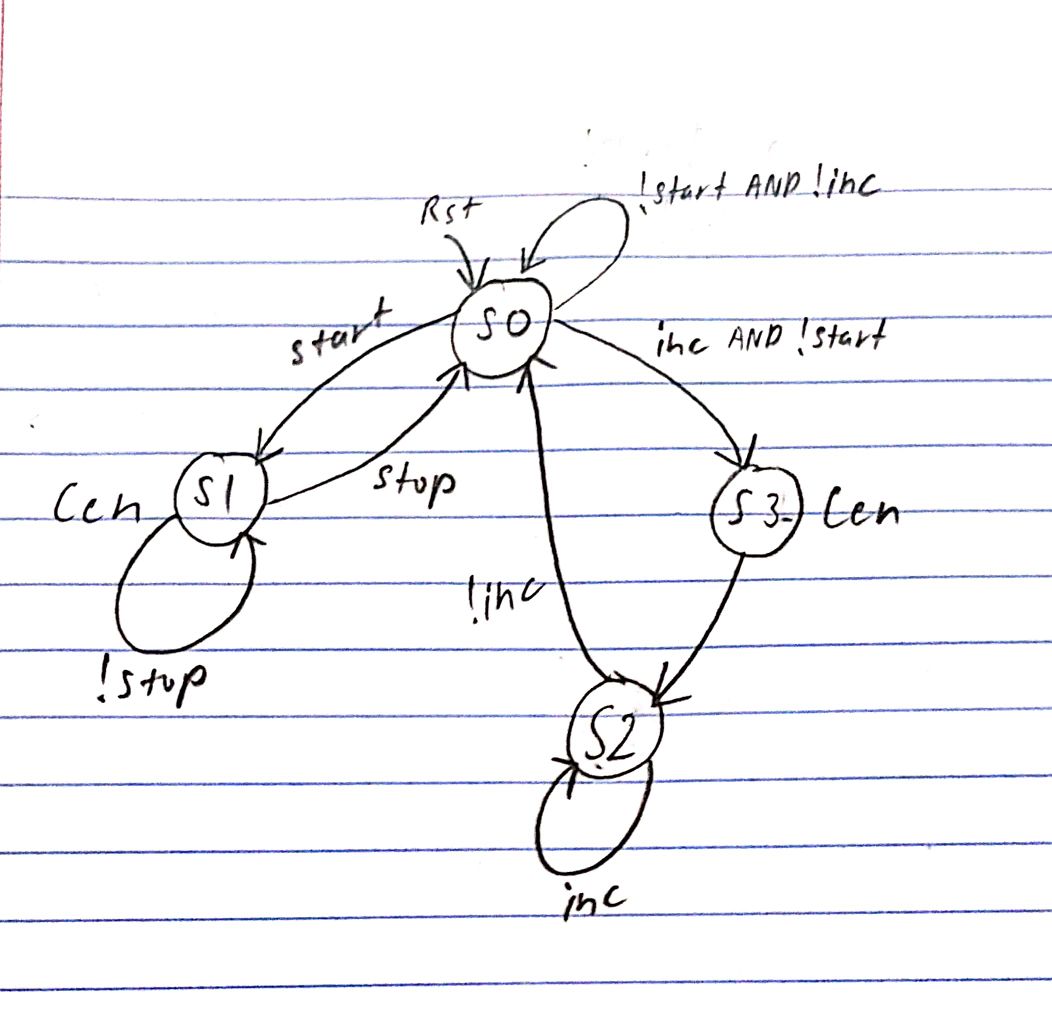 !start AND !inc
Rst
S0
start
inc AND !start
S1
Cen
stop
S3
Cen
!inc
!stop
S2
inc